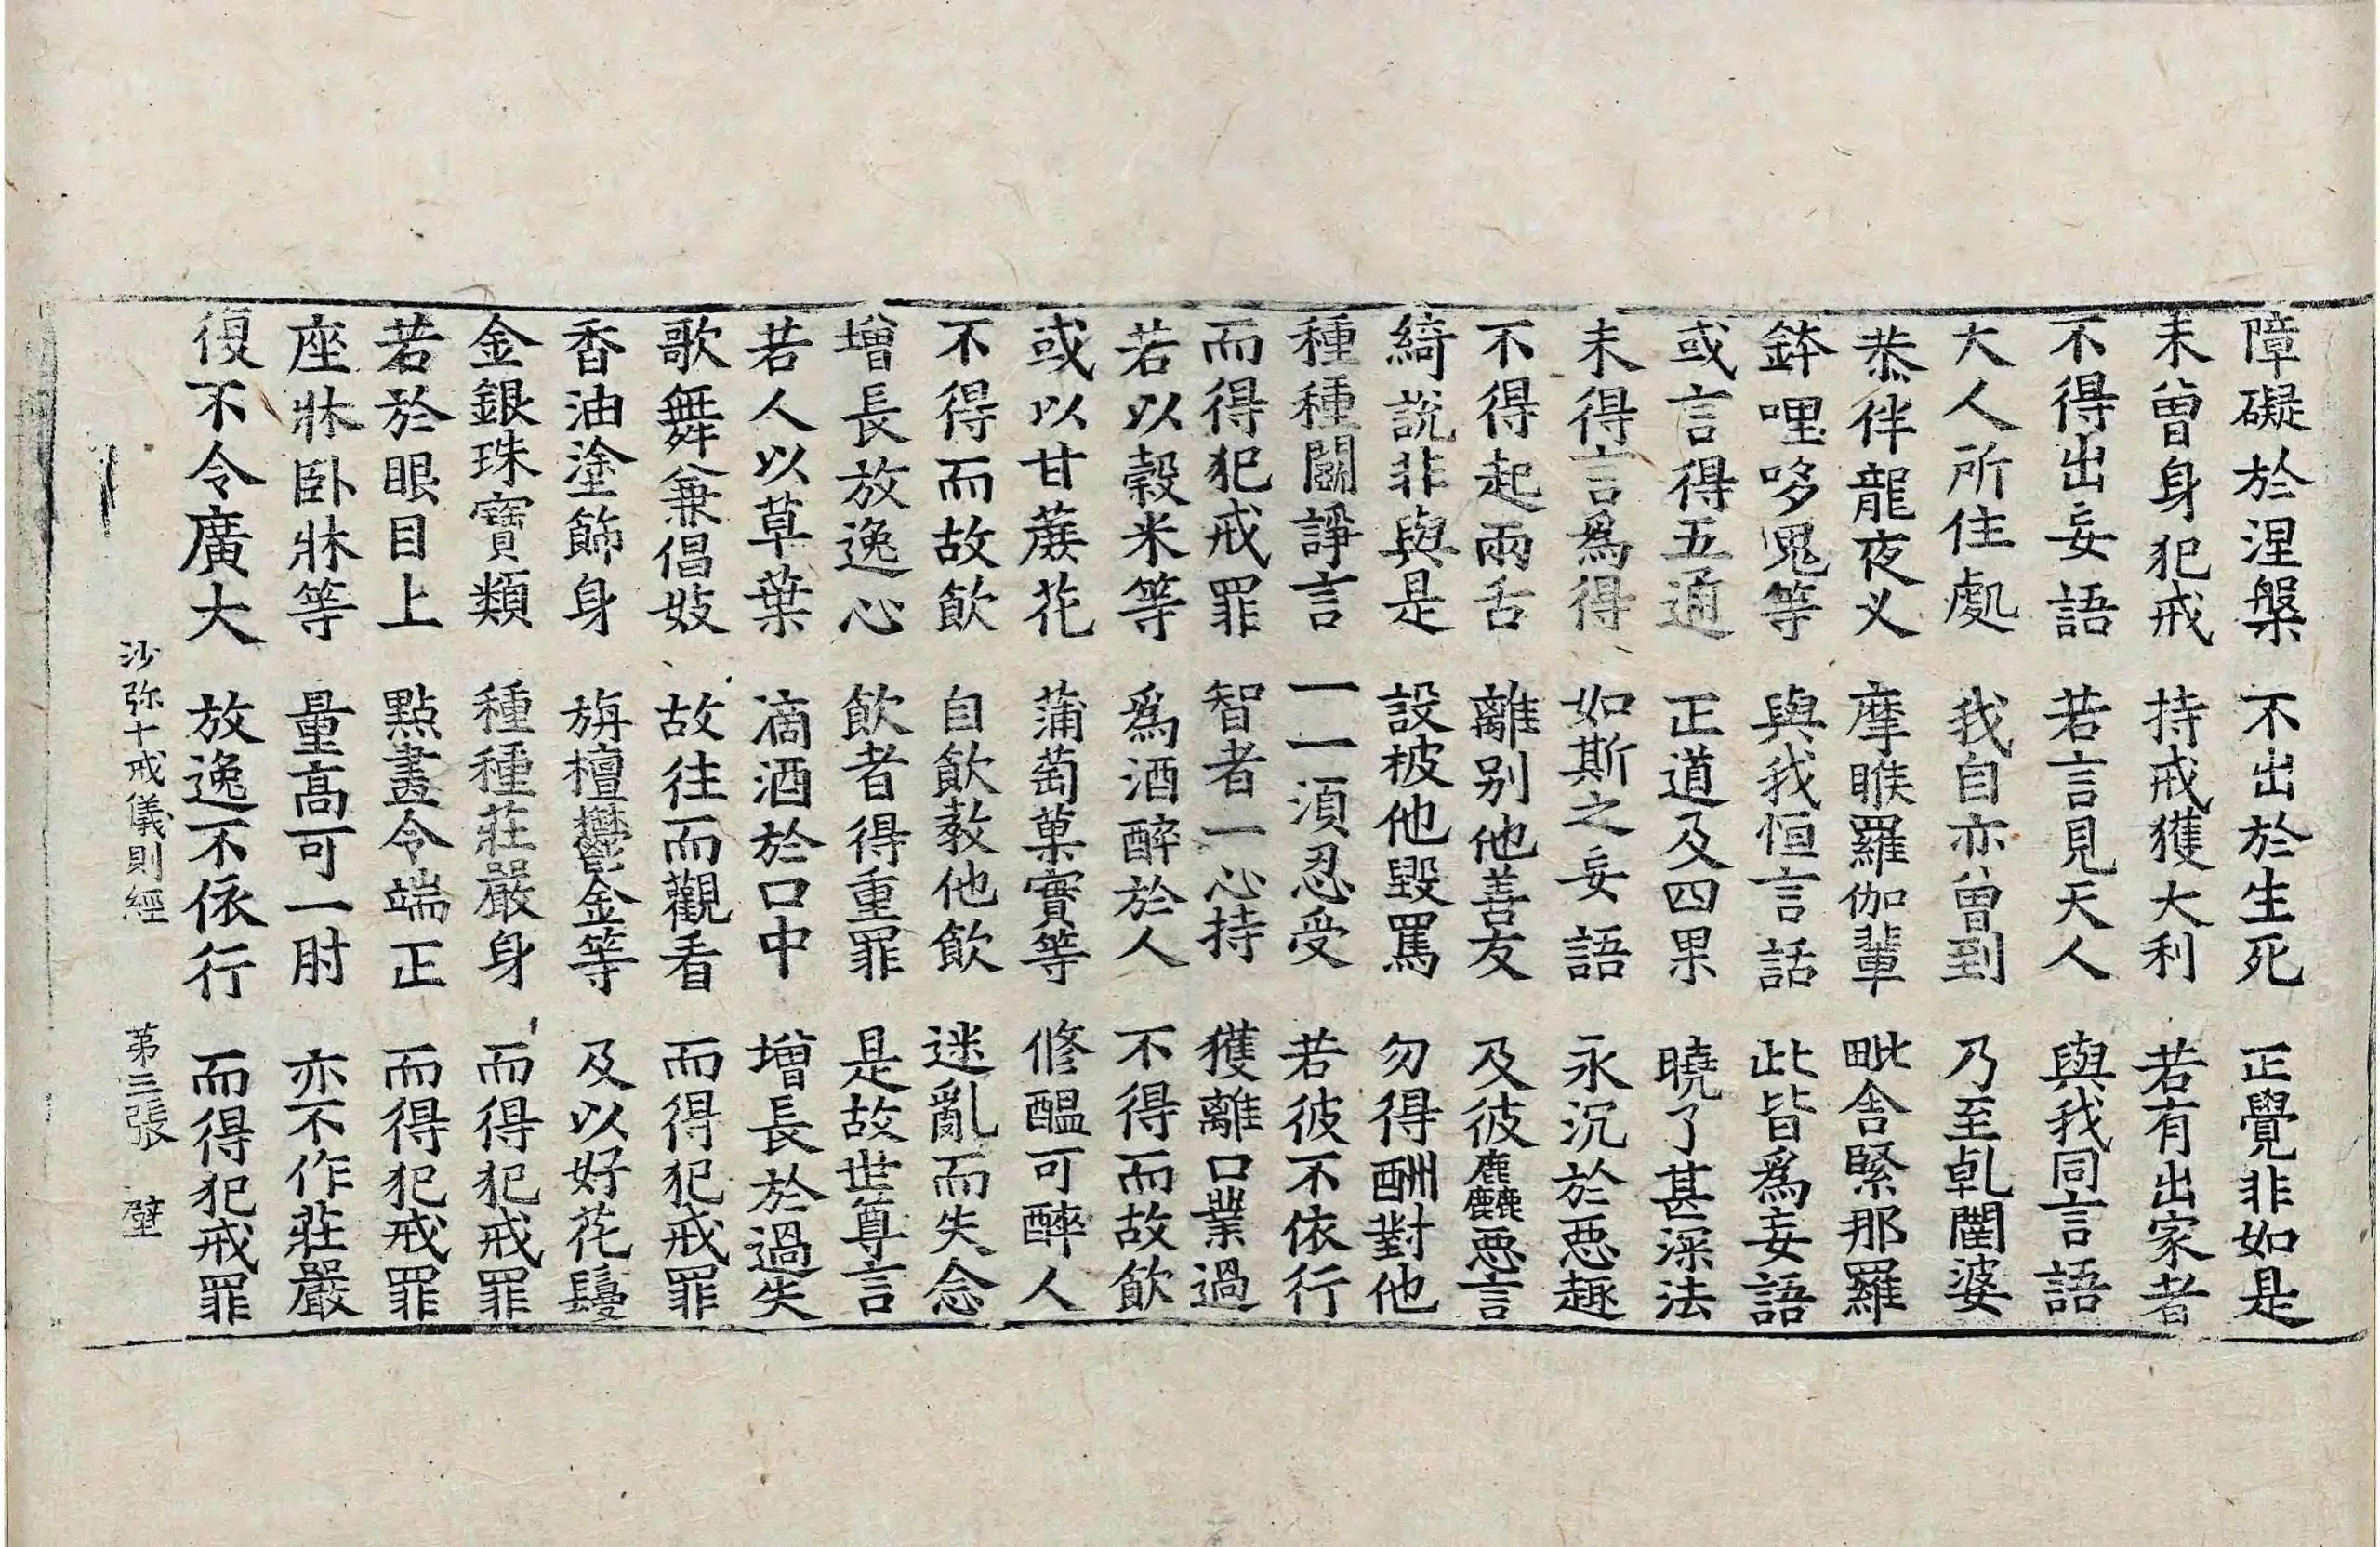 障礙於涅槃　不出於生死　正覺非如是
未曾身犯戒　持戒獲大利　若有出家者
不得出妄語　若言見天人　與我同言語
大人所住處　我自亦曾到　乃至乹闥婆
恭伴龍夜叉　摩睺羅伽輩　毗舍緊那羅
鉢哩哆鬼等　與我恒言話　此皆爲妄語
或言得五通　正道及四果　曉了甚深法
未得言爲得　如斯之妄語　永沉於惡趣
不得起兩舌　離别他善友　及彼麤惡言
綺說非與是　設被他毀罵　勿得酬對他
種種鬪諍言　一一須忍受　若彼不依行
而得犯戒罪　智者一心持　獲離口業過
若以穀米等　爲酒醉於人　不得而故飲
或以甘蔗花　蒲萄菓實等　修醞可醉人
不得而故飲　自飲教他飲　迷亂而失念
增長放逸心　飲者得重罪　是故世尊言
若人以草葉　滴酒於口中　增長於過失
歌舞兼倡妓　故往而觀看　而得犯戒罪
香油塗飾身　旃檀鬱金等　及以好花鬘
金銀珠寶類　種種莊嚴身　而得犯戒罪
若於眼目上　點畫令端正　而得犯戒罪
座牀卧牀等　量高可一肘　亦不作莊嚴
復不令廣大　放逸不依行　而得犯戒罪
沙弥十戒儀則經　苐三張　壁